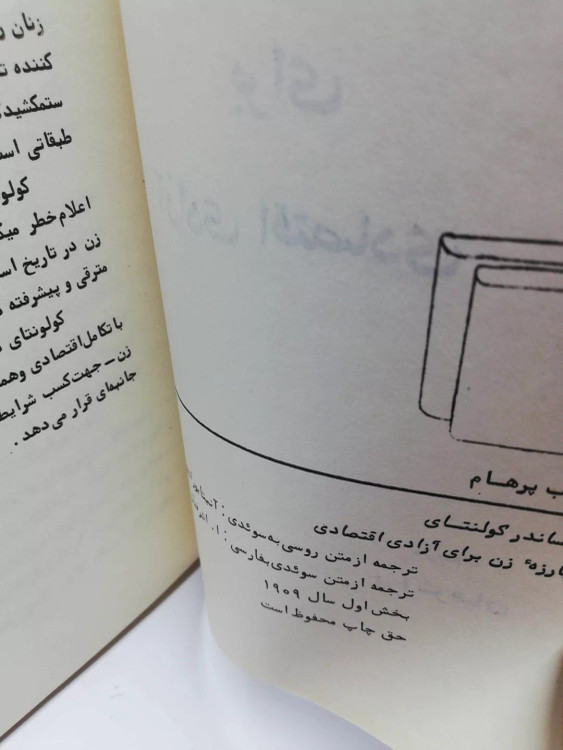 پرهام
کولنتای
زن برای آزادی اقتصادی
ترجمه ازمتن روسی به سوئدی :
ترجمه ازمتن سوئدی بفارسی : ا.
بخش اول سال ۱۹۰۹
حق چاپ محفوظ است
زنان
کننده
ستمکشید
طبقاتی
کولو
اعلام خطر میک
زن در تاریخ اس
مترقی و پیشرفته
کولونتای
باتکامل اقتصادی وهم
زن – جهت کسب شرایط
جانبه‌ای قرار می‌دهد .